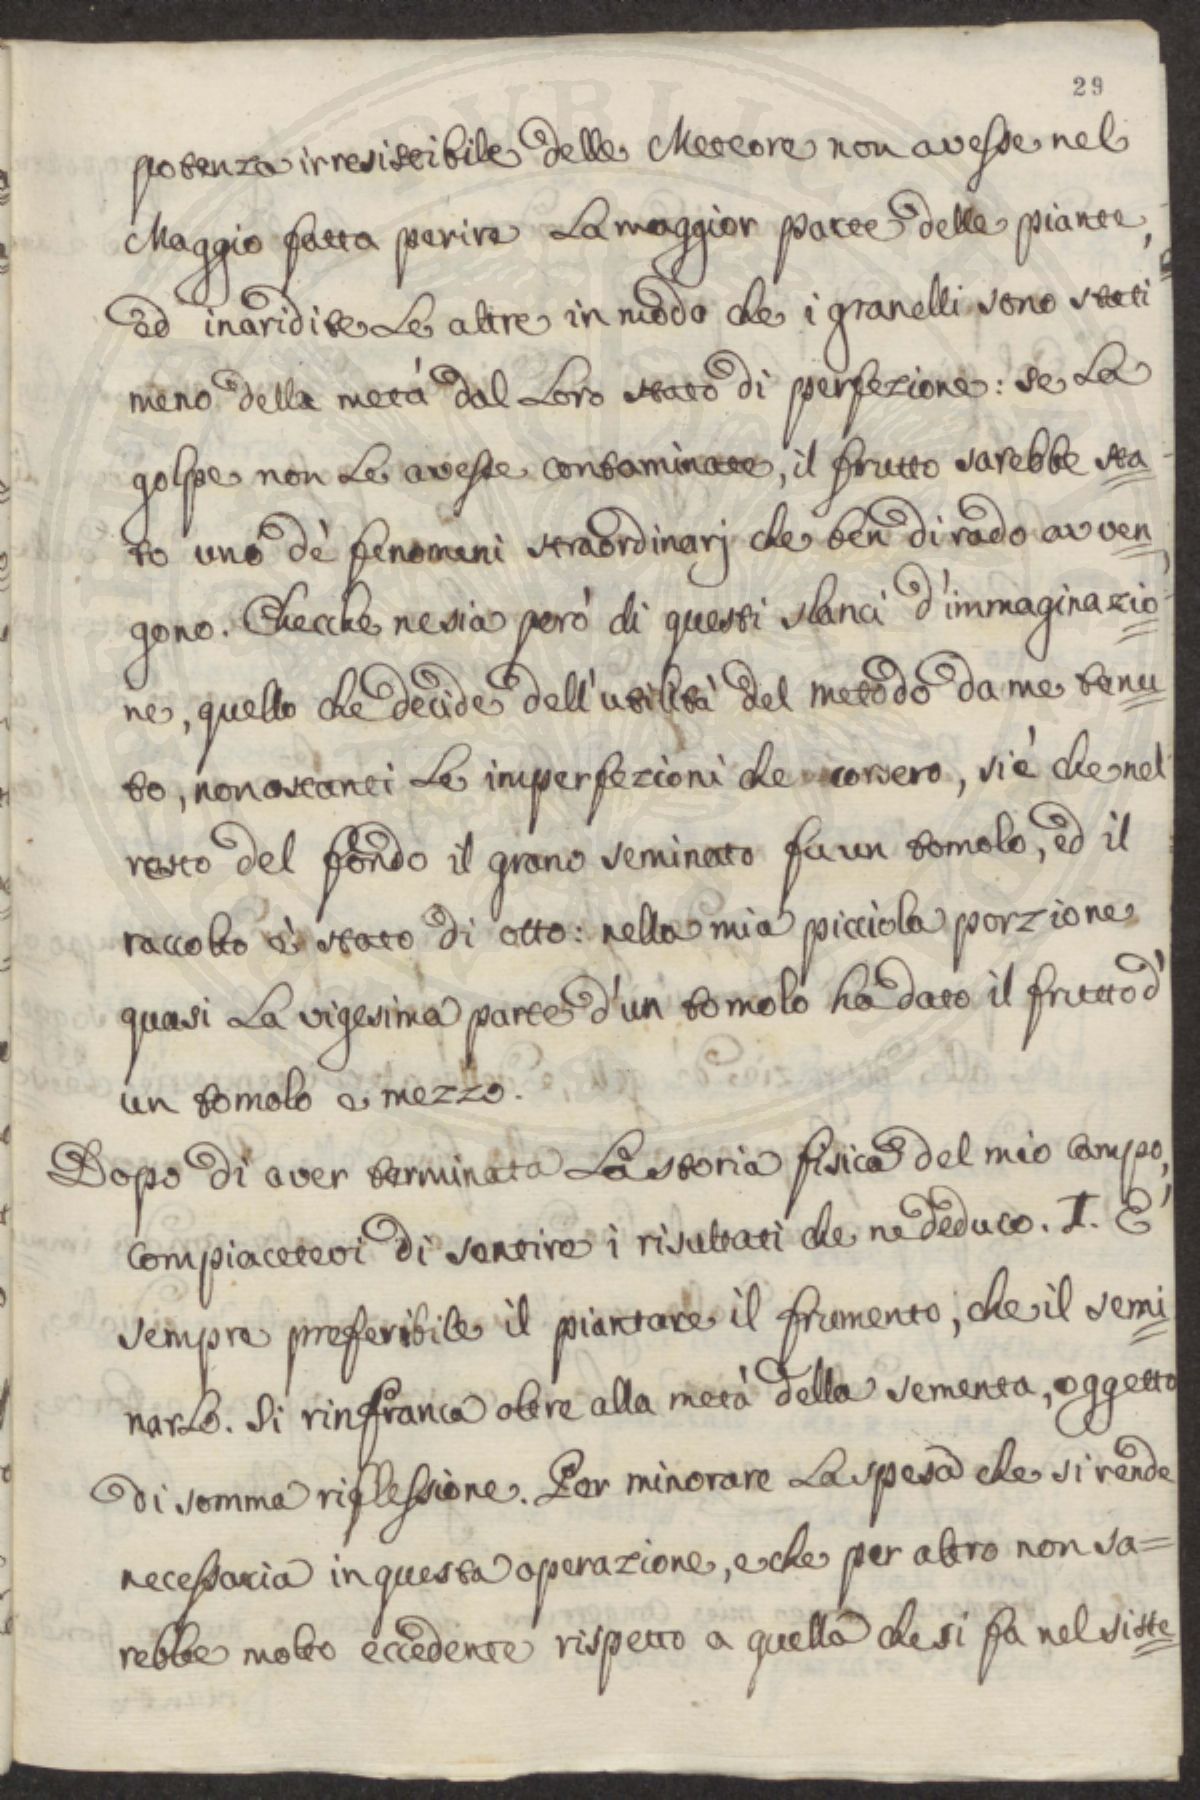 29
potenza irresistibile delle Meteore non avesse nel
Maggio fatta perire La maggior parte delle piante,
ed inaridite Le altre in modo che i granelli sono stati
meno della metà dal Loro stato di perfezione: se La
golpe non Le avesse contaminate, il frutto sarebbe sta
to uno dè fenomeni straordinarj che ben di rado avven
gono. Checche ne sia però di questi slanci d'immaginazio
ne, quello che decide dell'utilità del metodo da me tenu
to, nonostanti Le imperfezioni che corsero, si è che nel
resto del fondo il grano seminato fu un tomolo, ed il
raccolto è stato di otto: nella mia picciola porzione
quasi La vigesima parte d'un tomolo ha dato il frutto d'
un tomolo e mezzo.
Dopo di aver terminata La storia fisica del mio campo,
compiacetevi di sentire i risultati che ne deduco. I. È
sempre preferibile il piantare il frumento, che il semi
narLo. Si rinfranca oltre alla metà della sementa, oggetto
di somma riflessione. Per minorare La spesa che si rende
necessaria in questa operazione, e che per altro non sa=
rebbe molto eccedente rispetto a quella che si fa nel siste